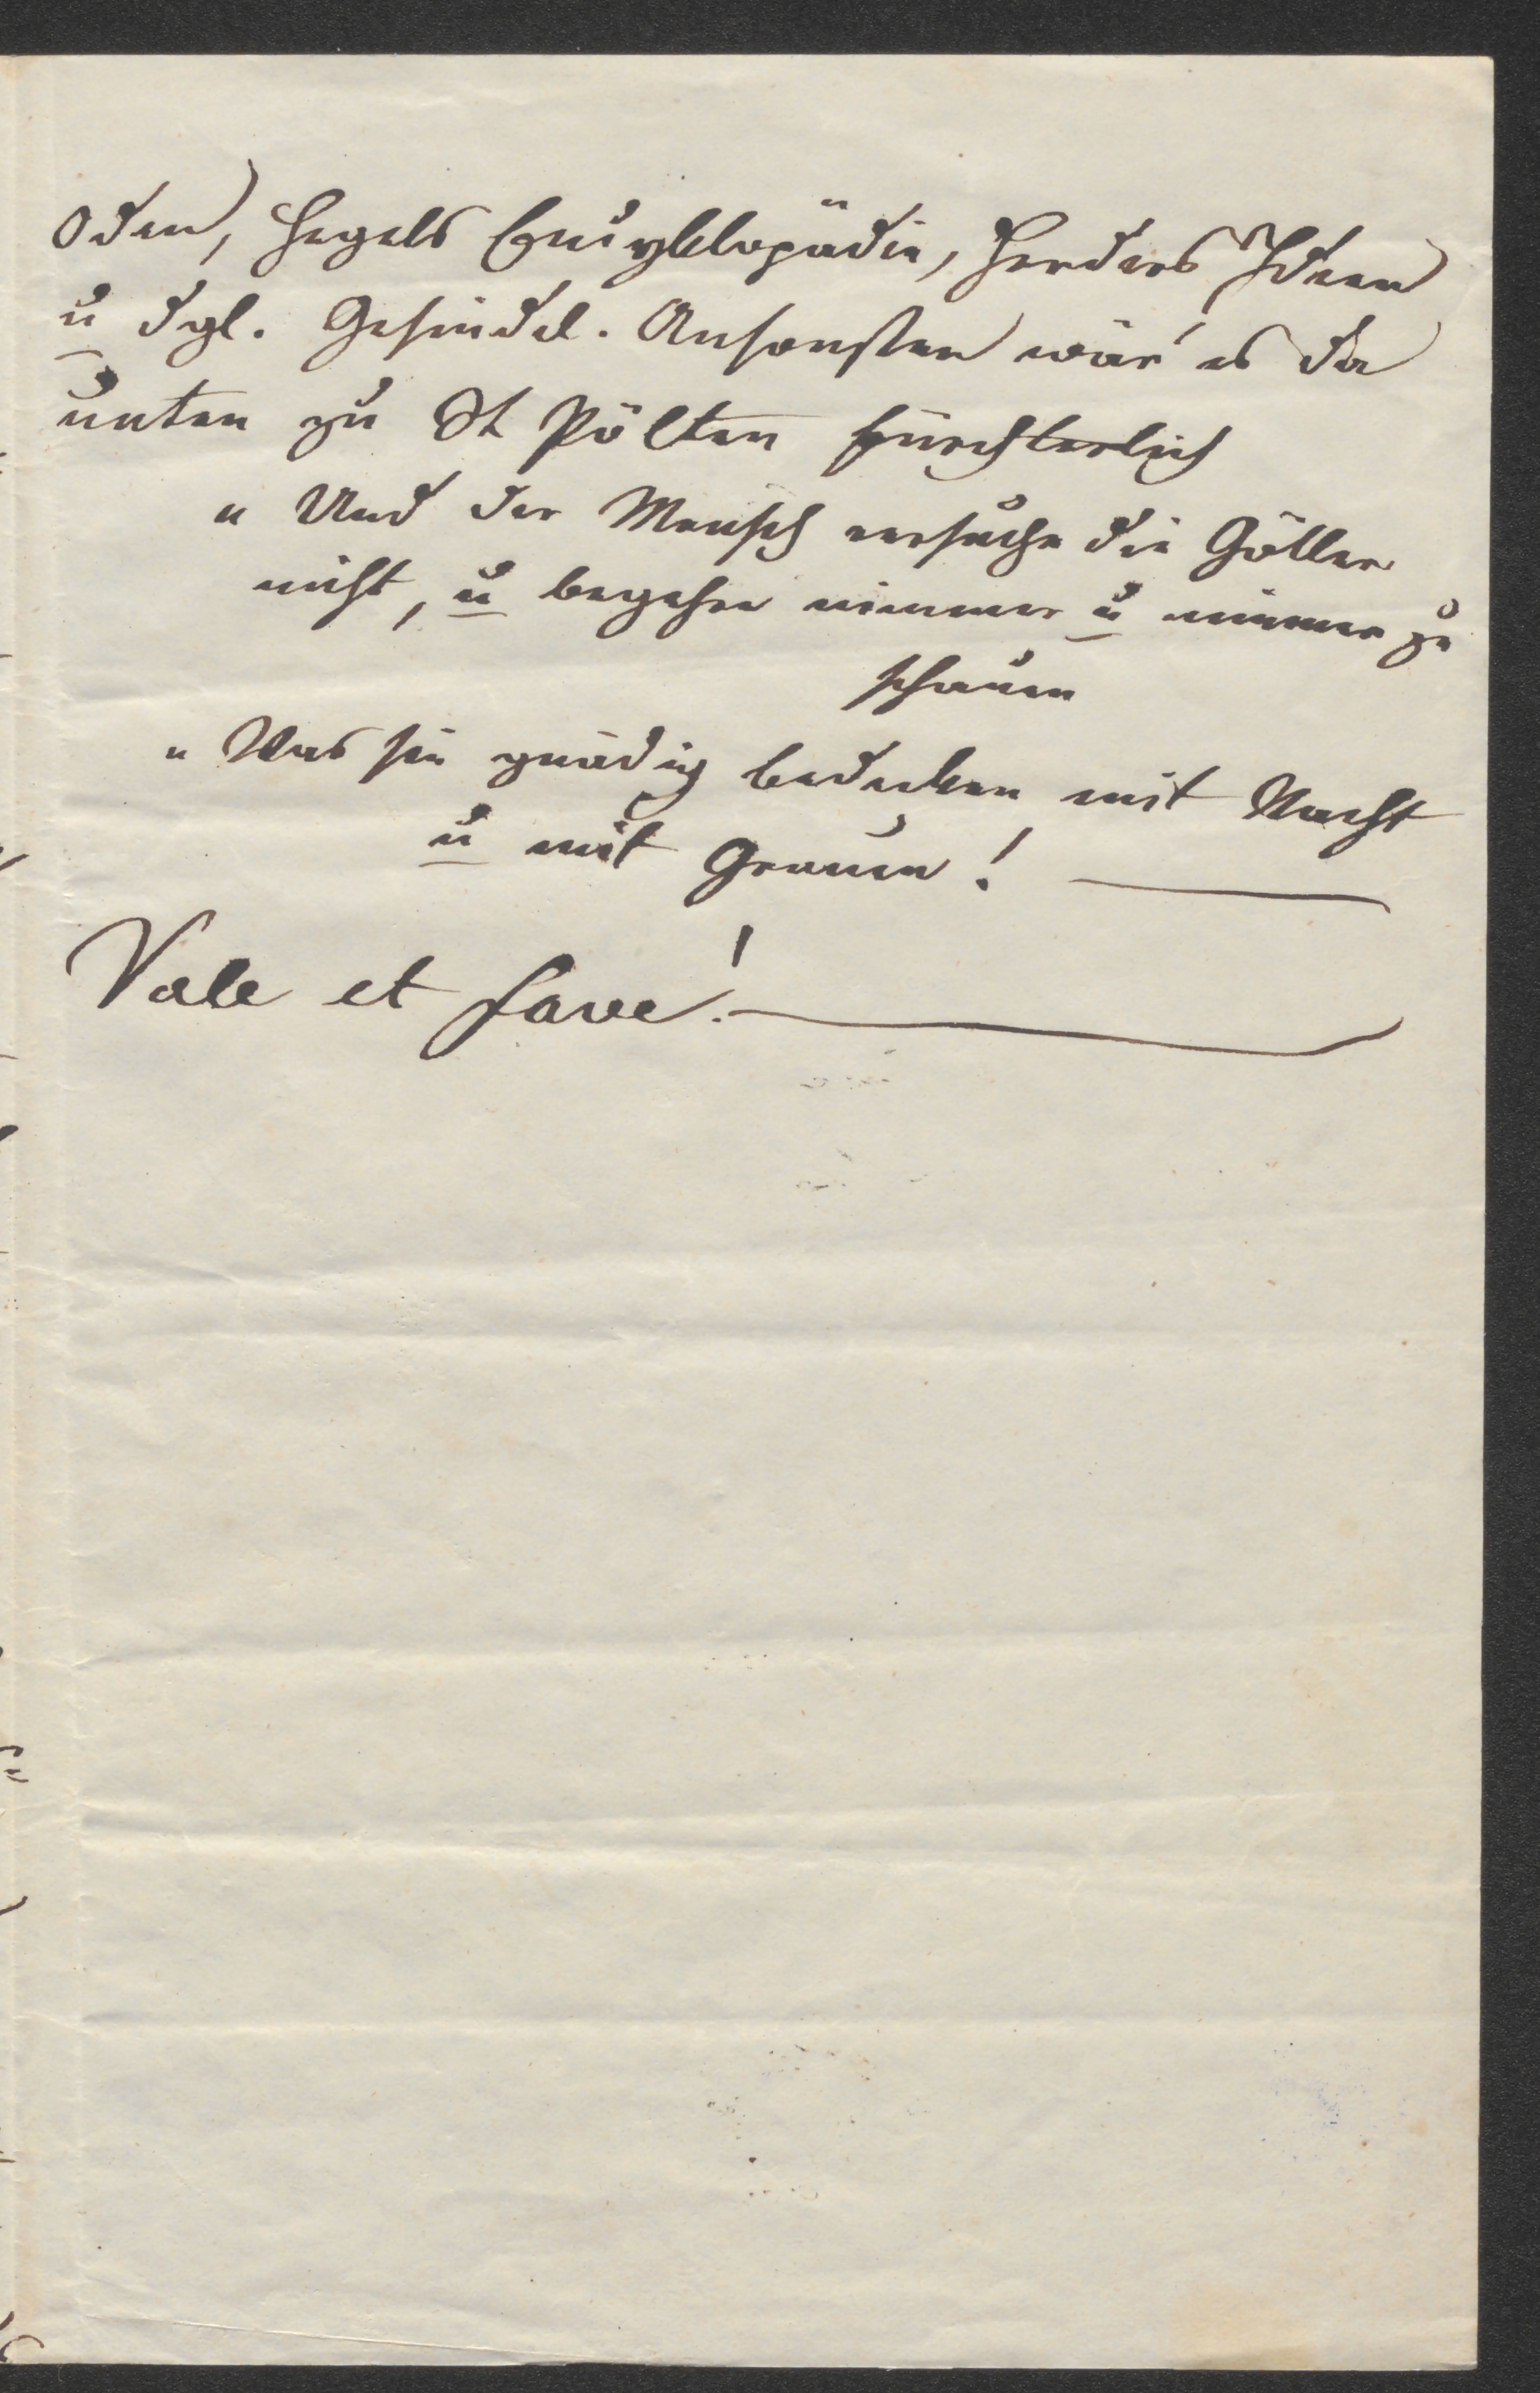 Oden, Hegels Encyklopädie, Herders Ideen
u dgl. Gesindel. Ansonsten wär' es da
unten zu St Pölten fürchterlich
„ Und der Mensch versuche die Götter
nicht, u begehre nimmer u nimmer zu
schauen
„ Was sie gnädig bedecken mit Nacht
u mit Grauen! —
Vale et fave! —